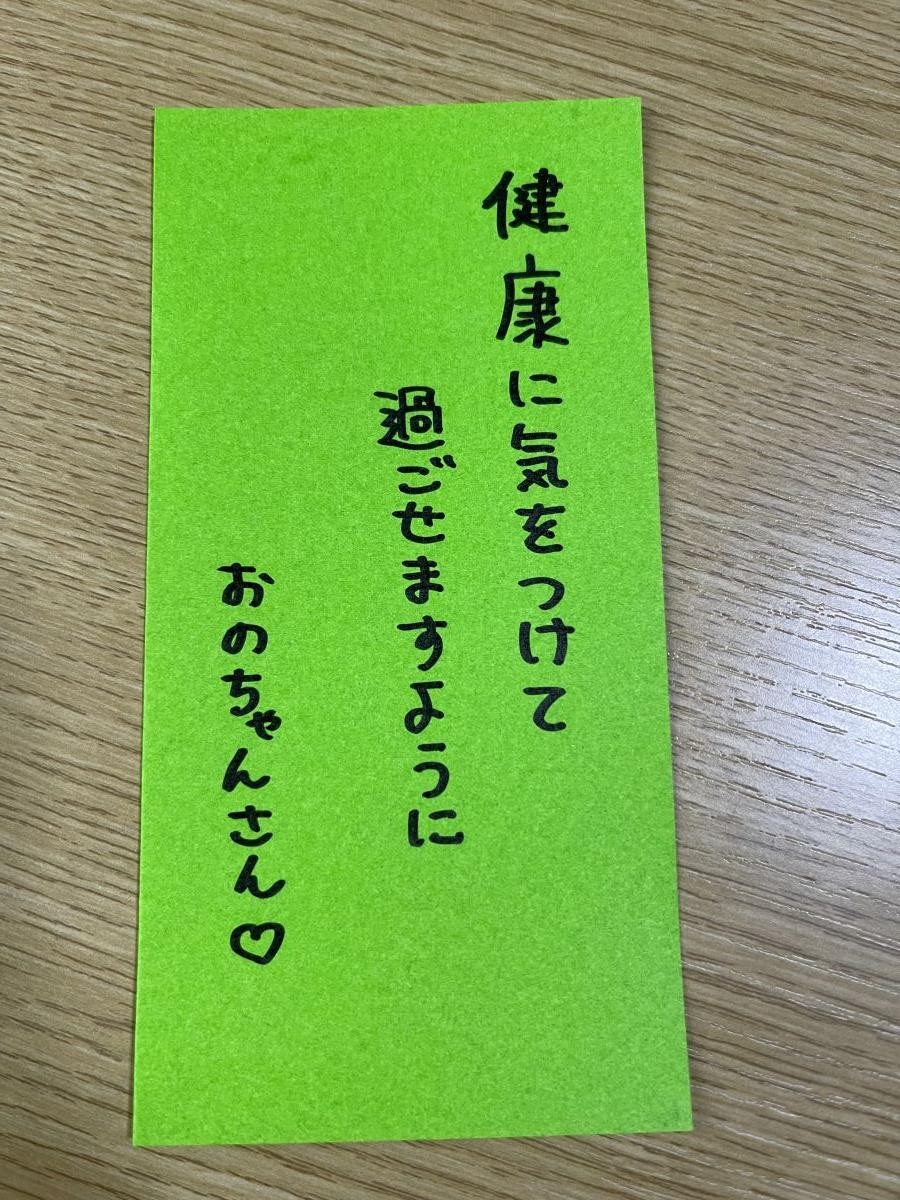 健康に気をつけて
過ごせますように
おのちゃんさん♡